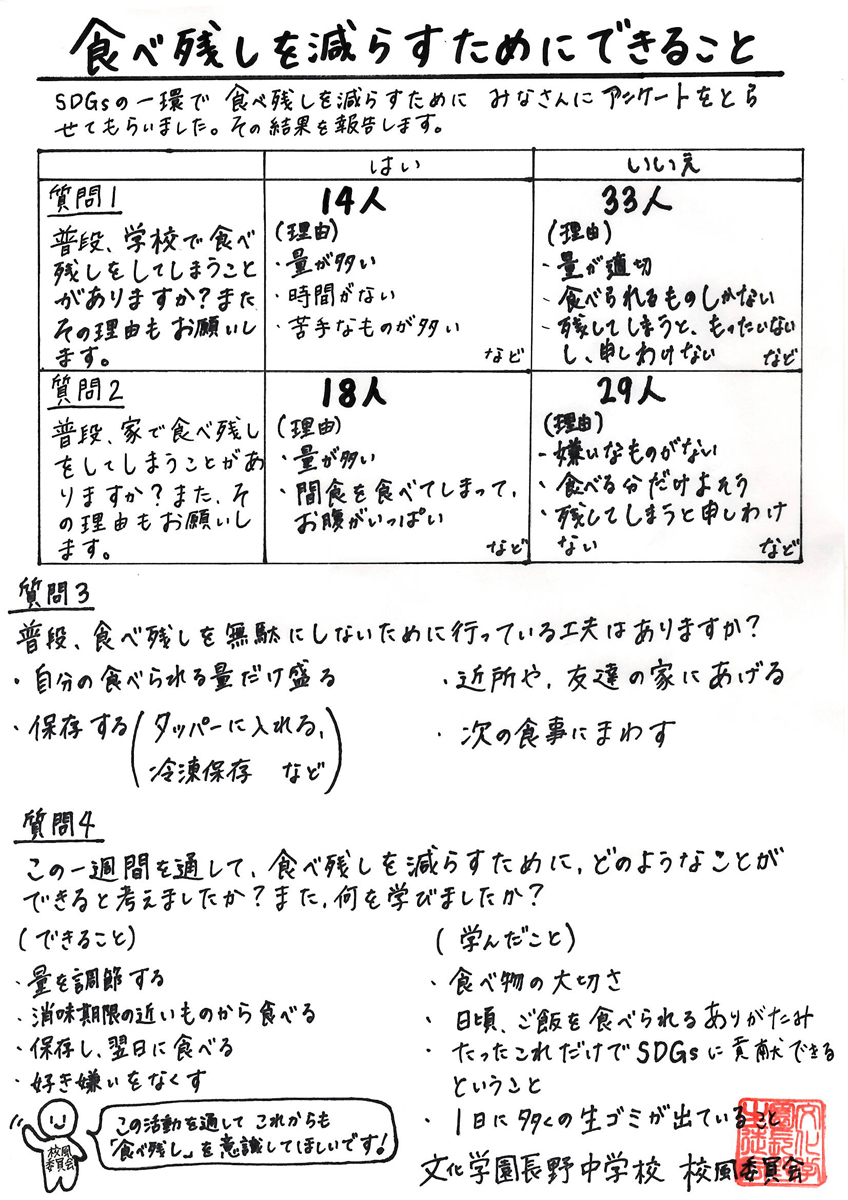 食べ残しを減らすためにできること
SDGsの一環で 食べ残しを減らすために みなさんに アンケートをとら
せてもらいました。その結果を報告します。
はい
いいえ
質問1
普段、学校で食べ
残しをしてしまうこと
がありますか?また
その理由もお願いし
ます。
14人
(理由)
・量が多い
・時間がない
・苦手なものが多い
など
33人
(理由)
・量が適切
・食べられるものしかない
・残してしまうと、もったいない
し、申しわけない など
質問2
普段、家で食べ残し
をしてしまうことがあ
りますか?また、そ
の理由もお願いし
ます。
18人
(理由)
・量が多い
・間食を食べてしまって、
お腹がいっぱい
など
29人
(理由)
・嫌いなものがない
・食べる分だけよそう
・残してしまうと申しわけ
ない など
質問3
普段、食べ残しを無駄にしないために行っている工夫はありますか?
・自分の食べられる量だけ盛る
・保存する(タッパーに入れる、
冷凍保存 など)
・近所や、友達の家にあげる
・次の食事にまわす
質問4
この一週間を通して、食べ残しを減らすために、どのようなことが
できると考えましたか?また、何を学びましたか?
(できること)
・量を調節する
・消味期限の近いものから食べる
・保存し、翌日に食べる
・好き嫌いをなくす
(学んだこと)
・食べ物の大切さ
・日頃、ご飯を食べられるありがたみ
・たったこれだけでSDGsに貢献できる
ということ
・1日に多くの生ゴミが出ていること
校風
委員会
この活動を通して これからも
「食べ残し」を意識してほしいです!
文化学園長野中学校 校風委員会